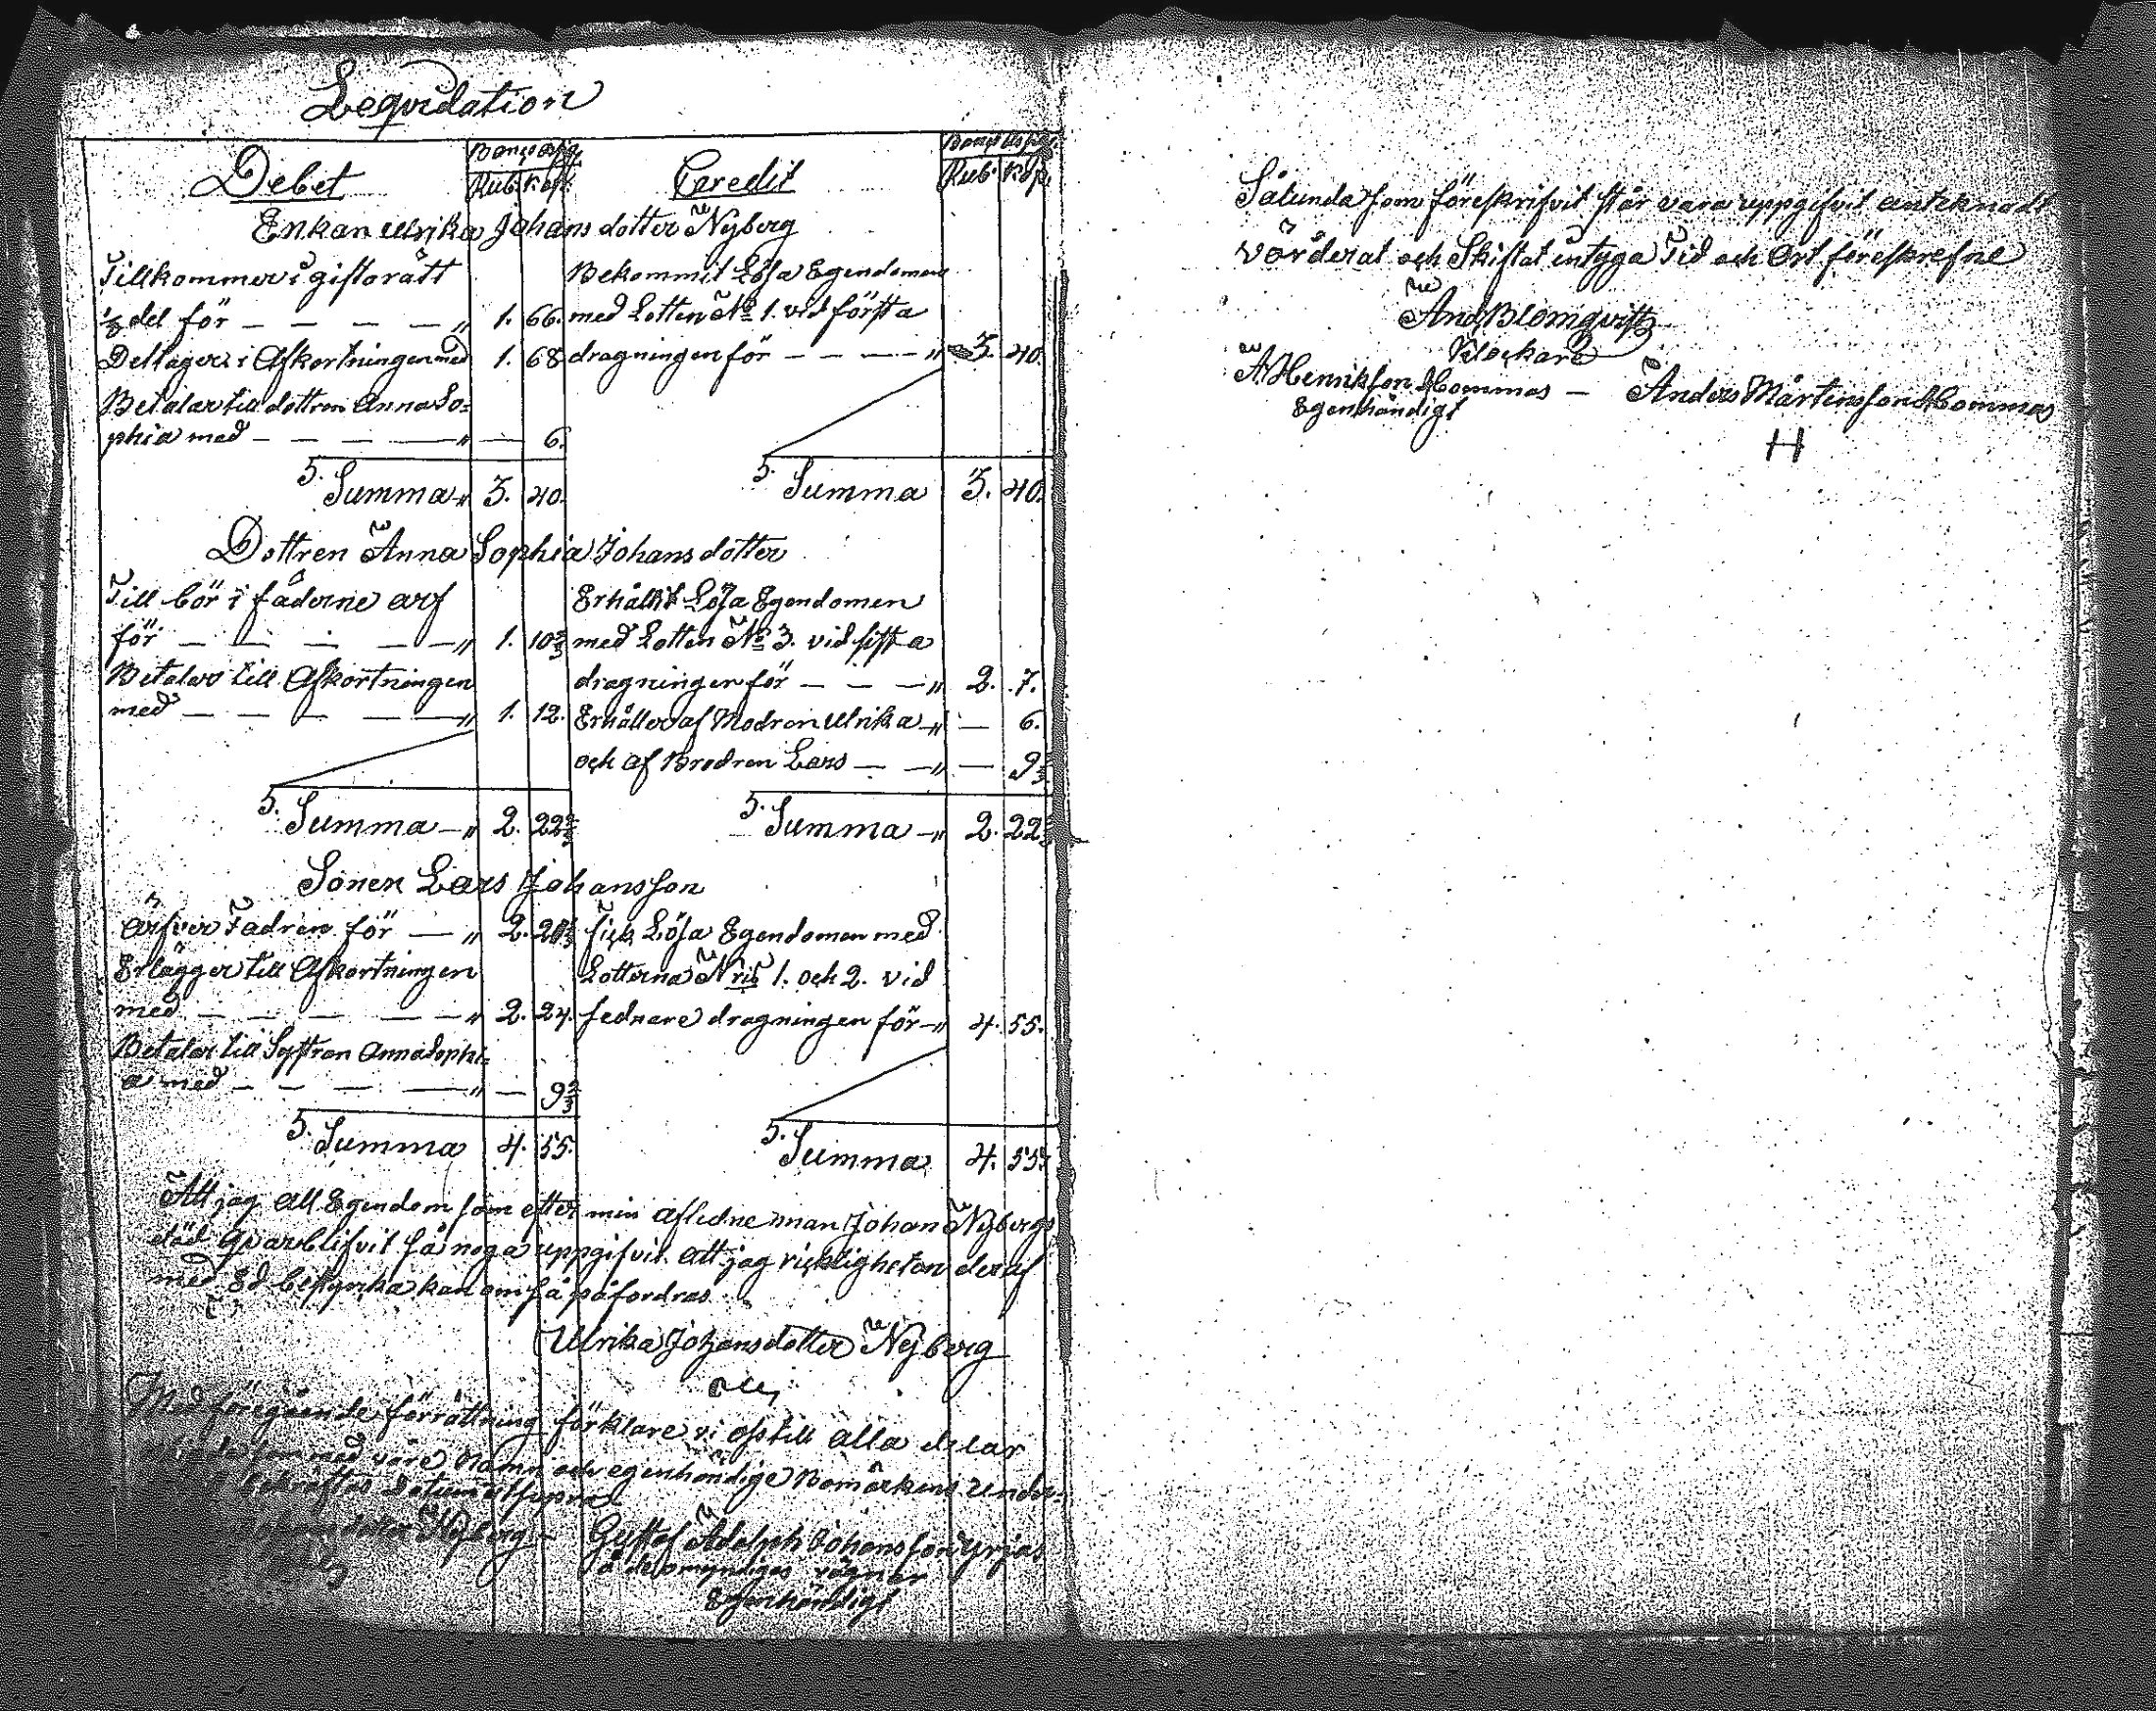 Leqvidation
Debet
Banco Assg.
Rub. Kop.
Credit
Banco Assg.
Rub. Kop.
Enkan Ulrika Johansdotter Nyberg
Tillkommer i giftorätt
1/3 del för — — — — „ 1. 66.
Deltager i Afkortningen med 1. 68
Betalar till dottren Anna So=
phia med — — — — „ — 6.
S. Summa „ 3. 40.
Bekommit Lösa Egendomen
med Lotten No 1. vid första
dragningen för — — — „ 3. 40.
S. Summa 3. 40.
Dottren Anna Sophia Johansdotter
Till bör i fäderne arf
för — — — — — „ 1. 10 2/3
Betalar till Afkortningen
med — — — — — „ 1. 12.
S. Summa — „ 2. 22 2/3
Erhållit Lösa Egendomen
med Lotten No 3. vid sista
dragningen för — — — „ 2. 7.
Erhåller af Modren Ulrika — „ — 6.
och af Brodren Lars — — „ — 9 2/3
S. Summa — „ 2. 22 2/3
Sonen Lars Johansson
Ärfver Fadren för — „ 2. 21 1/3
Erlägger till Afkortningen
med — — — — — „ 2. 24.
Betalar till Systren Anna Sophi=
a med — — — — „ — 9 2/3
S. Summa 4. 55.
fick Lösa Egendomen med
Lotterna N ris 1. och 2. vid
sednare dragningen för — „ 4. 55.
S. Summa 4. 55.
Att jag all Egendom som efter min aflidne man Johan Nybergs
död qvarblifvit så noga uppgifvit att jag ricktigheten deraf
med Ed bestyrka kan om så påfordras
Ulrika Johansdotter Nyberg
Med föregående förrättning förklare vi oss till alla delar
med våre Namn och egenhändige Bomärkens under=
bekräftas Datum utsupra
dotter Nyberg — Gustaf Adolph Johansson Yrjas
På de omyndigas vägnar
Egenhändigt
Sålunda som föreskrifvit står vara uppgifvit antecknadt
värderat och Skiftat intyga Tid och Ort föreskrefne
And. Blomqvist
Klockare
A Henriksson Hommas — Anders Mårtensson Hommas
Egenhändigt
H